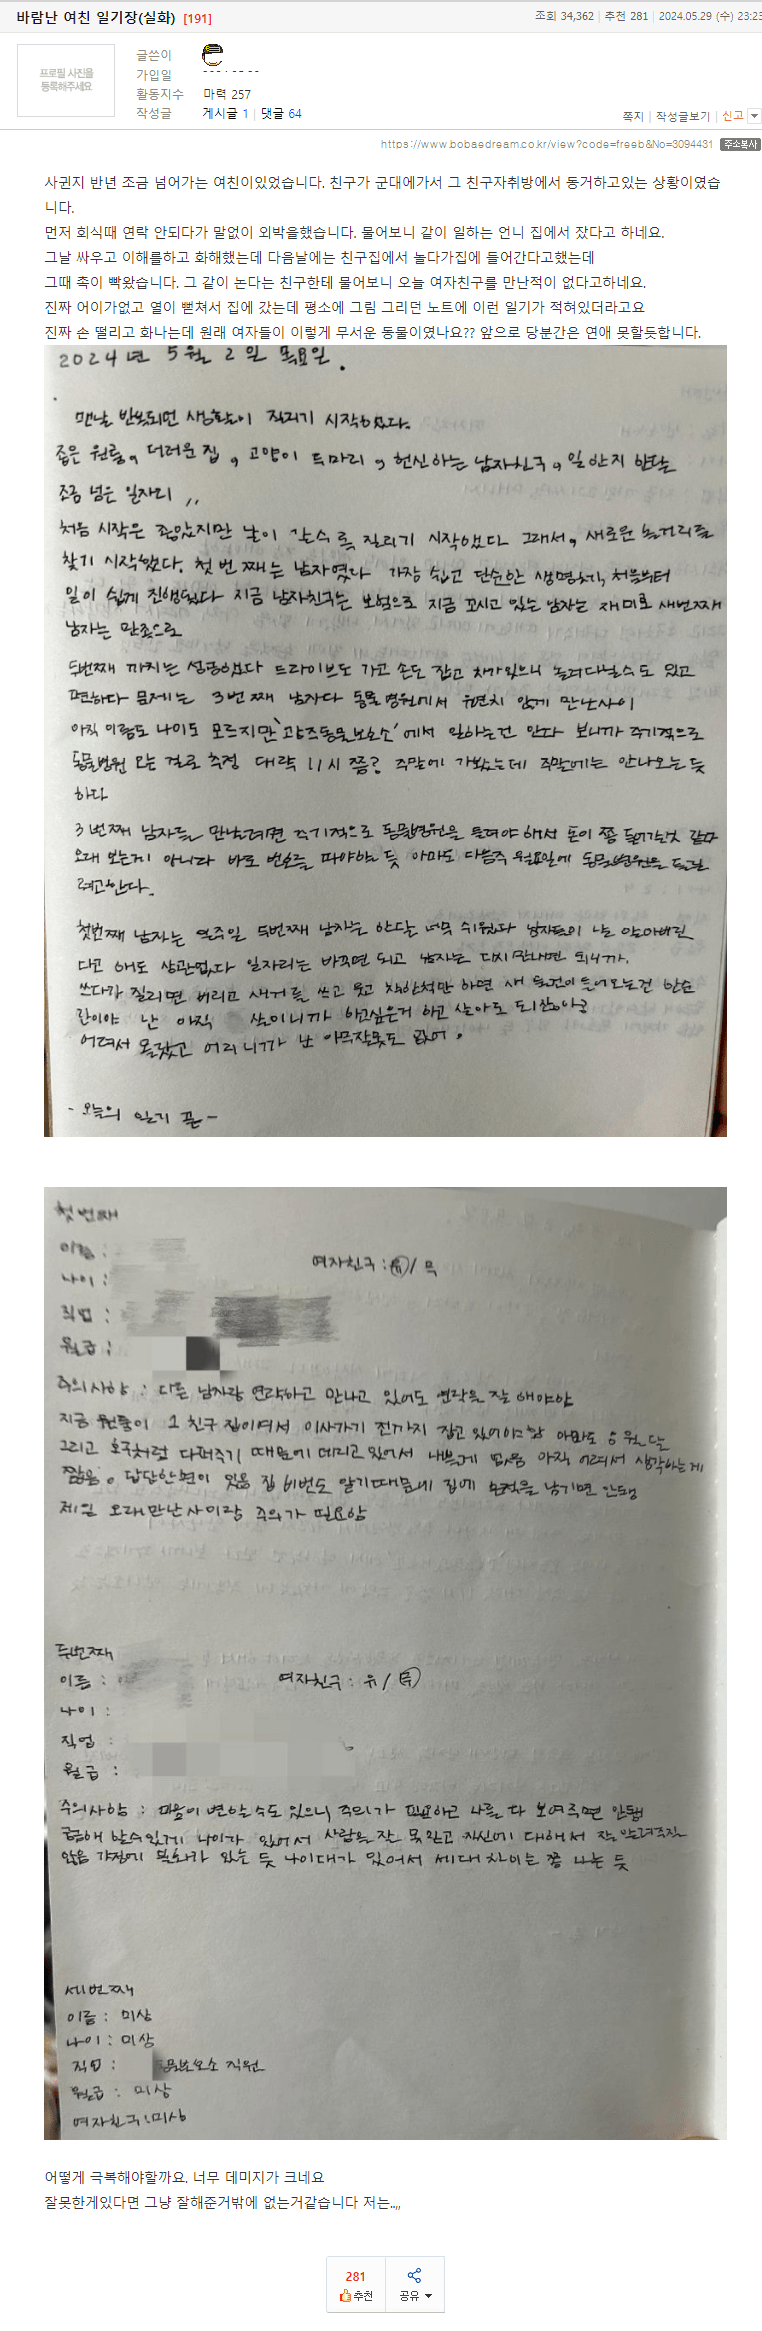 바람난 여친 일기장(실화) [191]
조회 34,362 | 추천 281 | 2024.05.29 (수) 23:23
프로필 사진을
등록해주세요
글쓴이
가입일
활동지수 마력 257
작성글 게시글 1 | 댓글 64
쪽지 | 작성글보기 | 신고
https://www.bobaedream.co.kr/view?code=freeb&No=3094431 주소복사
사귄지 반년 조금 넘어가는 여친이있었습니다. 친구가 군대에가서 그 친구자취방에서 동거하고있는 상황이였습
니다.
먼저 회식때 연락 안되다가 말없이 외박을했습니다. 물어보니 같이 일하는 언니 집에서 잤다고 하네요.
그날 싸우고 이해를하고 화해했는데 다음날에는 친구집에서 놀다가집에 들어간다고했는데
그때 촉이 빡왔습니다. 그 같이 논다는 친구한테 물어보니 오늘 여자친구를 만난적이 없다고하네요.
진짜 어이가없고 열이 뻗쳐서 집에 갔는데 평소에 그림 그리던 노트에 이런 일기가 적혀있더라고요
진짜 손 떨리고 화나는데 원래 여자들이 이렇게 무서운 동물이였나요?? 앞으로 당분간은 연애 못할듯합니다.
2024년 5월 2일 목요일.
맨날 반복되던 생활이 질리기 시작하였다.
좁은 원룸, 더러운 집, 고양이 두마리, 헌신하는 남자친구, 일한지 한달
조금 넘은 일자리,,
처음 시작은 좋았지만 날이 갈수록 질리기 시작했다 그래서, 새로운 놀거리를
찾기 시작했다. 첫 번째는 남자였다 가장 쉽고 단순한 생명체, 처음부터
일이 쉽게 진행됐다 지금 남자친구는 보험으로 지금 꼬시고 있는 남자는 재미로 세번째
남자는 만족으로
두번째 까지는 성공하였다 드라이브도 가고 손도 잡고 차가있으니 놀러다닐수도 있고
편하다 문제는 3번째 남자다 동물병원에서 우연치 않게 만난사이
아직 이름도 나이도 모르지만 '동물보호소'에서 일하는건 안다 보니까 주기적으로
동물병원 오는 걸로 추정 대략 11시 쯤? 주말에 가봤는데 주말에는 안나오는듯
하다
3번째 남자를 만날려면 주기적으로 동물병원을 들려야 해서 돈이 쫌 들어가는것 같다
오래 보는게 아니라 바로 번호를 따야할 듯 아마도 다음주 월요일에 동물병원을 들릴
려고한다.
첫번째 남자는 일주일 두번째 남자는 한달 너무 쉬웠다 남자들이 나를 알아버린
다고 해도 상관없다 일자리는 바꾸면 되고 남자는 다시 만나면 되니까.
쓰다가 질리면 버리고 새거를 쓰고 웃고 착한척만 하면 새 물건이 들어오는건 한순
간이야 난 아직 살이니까 하고싶은거 하고 살아도 되잖아?
어려서 몰랐고 어리니까 난 아무잘못도 없어.
- 오늘의 일기 끝 -
첫번째
이름 :
나이 :
여자친구 : 유 / 무
직업 :
월급 :
주의사항 : 다른 남자랑 연락하고 만나고 있어도 연락을 잘 해야함
지금 원룸이 1 친구 집이여서 이사가기 전까지 잡고 있어야함 아마도 5월달
그리고 호구처럼 다퍼주기 때문에 데리고 있어서 나쁘게 없음 아직 어려서 생각하는게
짧음. 답답한면이 있음 집 비번도 알기때문에 집에 흔적을 남기면 안됌
제일 오래만난사이랑 주의가 필요함
두번째
이름 :
여자친구 : 유 / 무
나이 :
직업 :
월급 :
주의사항 : 마음이 변할수도 있으니 주의가 필요하고 나를 다 보여주면 안됌
나이가 있어서 사람을 잘 못믿고 자신에 대해서 잘 안알려주질
않음 가정에 불화가 있는 듯 나이대가 있어서 세대 차이는 쫌 나는 듯
세번째
이름 : 미상
나이 : 미상
직업 : 동물보호소 직원
월급 : 미상
여자친구 : 미상
어떻게 극복해야할까요. 너무 데미지가 크네요
잘못한게있다면 그냥 잘해준거밖에 없는거같습니다 저는..,,
281
추천
공유